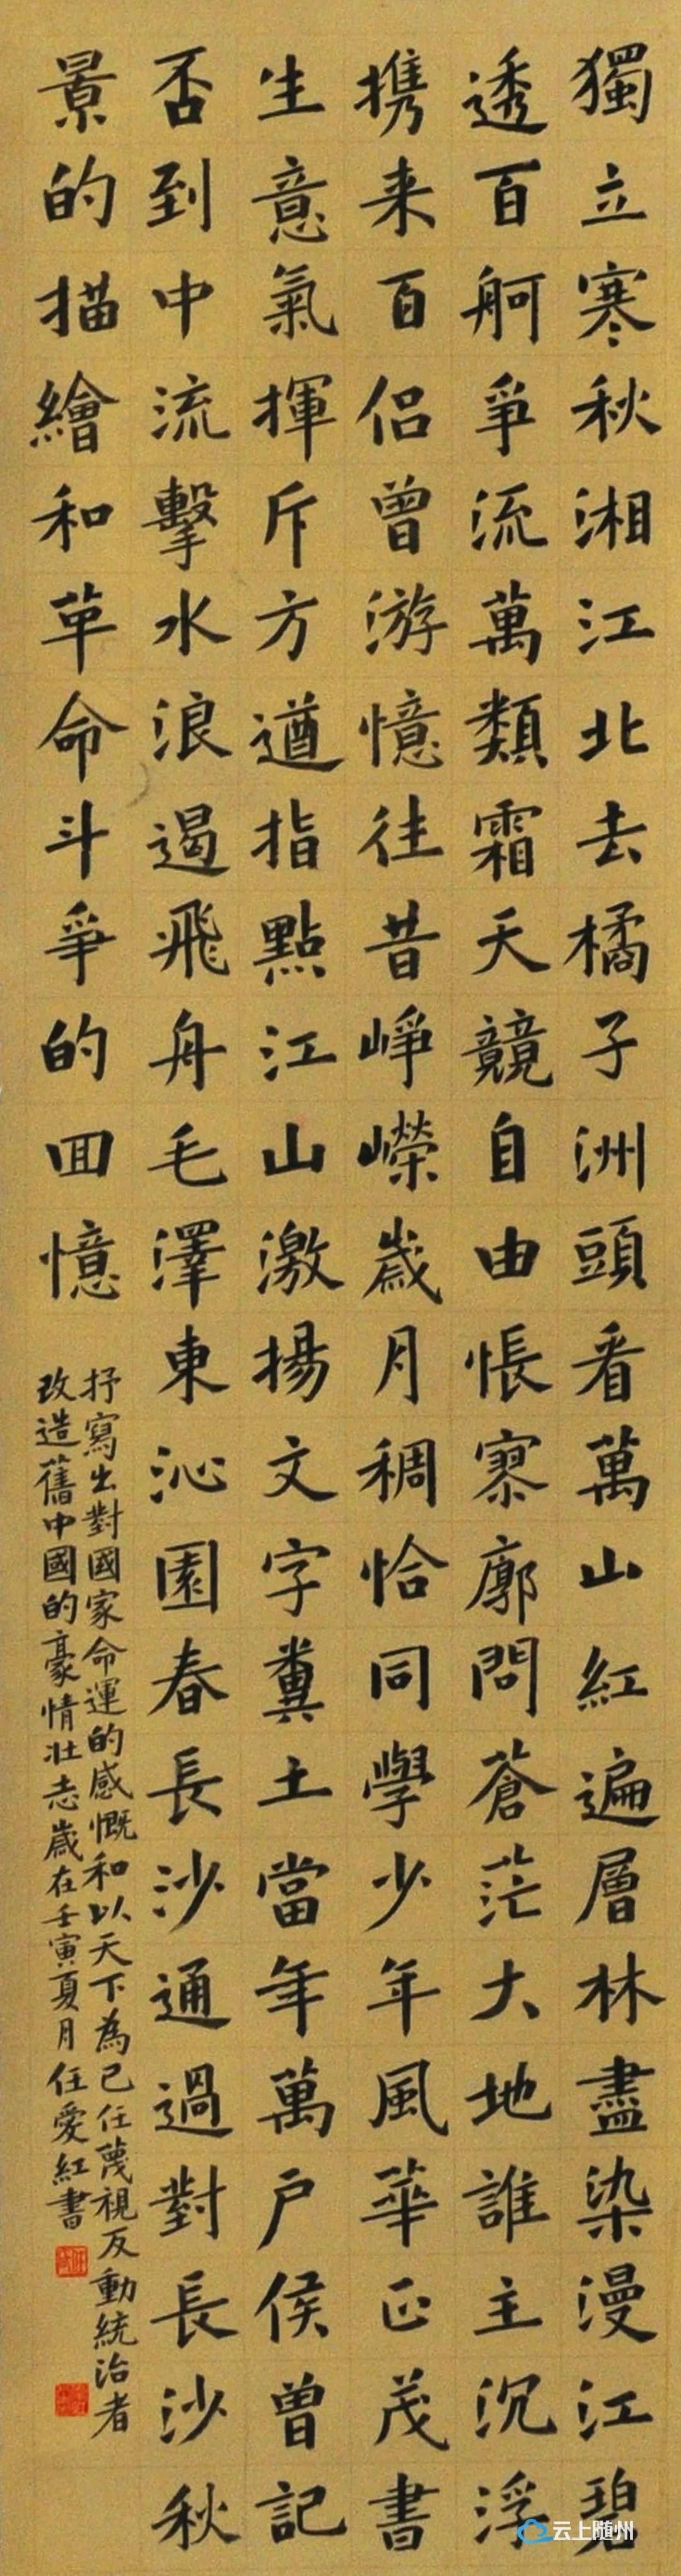 獨立寒秋湘江北去橘子洲頭看萬山紅遍層林盡染漫江碧
透百舸爭流萬類霜天競自由悵寥廓問蒼茫大地誰主沉浮
携来百侣曾游憶往昔崢嶸歲月稠恰同學少年風華正茂書
生意氣揮斥方遒指點江山激揚文字糞土當年萬户侯曾記
否到中流擊水浪遏飛舟毛澤東沁園春長沙通過對長沙秋
景的描繪和革命斗爭的回憶
抒寫出對國家命運的感慨和以天下為己任蔑視反動統治者
改造舊中國的豪情壯志歲在壬寅夏月任愛紅書
云上随州